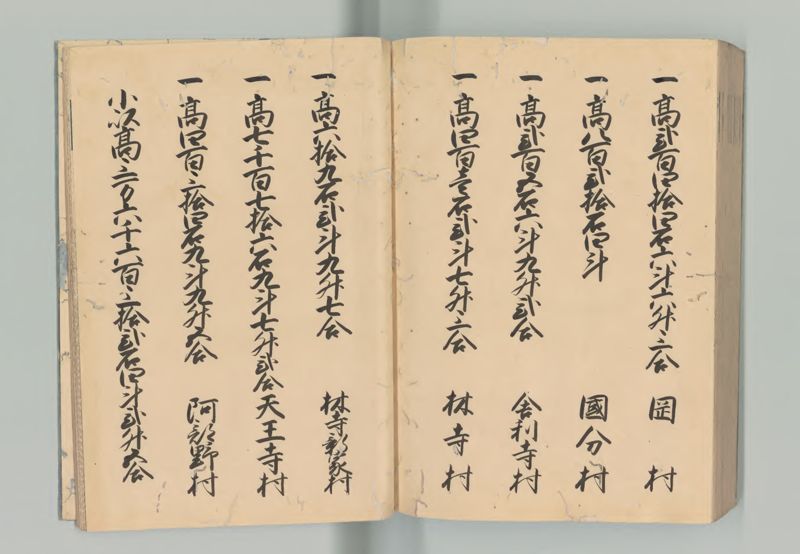 一高弐百四拾四石六斗六升三合 岡村
一高八百弐拾石四斗 國分村
一高弐百五石六斗九升弐合 舎利寺村
一高四百壱石弐斗七升三合 林寺村
一高六拾九石弐斗九升七合 林寺新家村
一高七千百七拾六石九斗七升弐合 天王寺村
一高四百三拾四石九斗九升五合 阿部野村
小以高三万六千六百三拾弐石四斗弐升五合